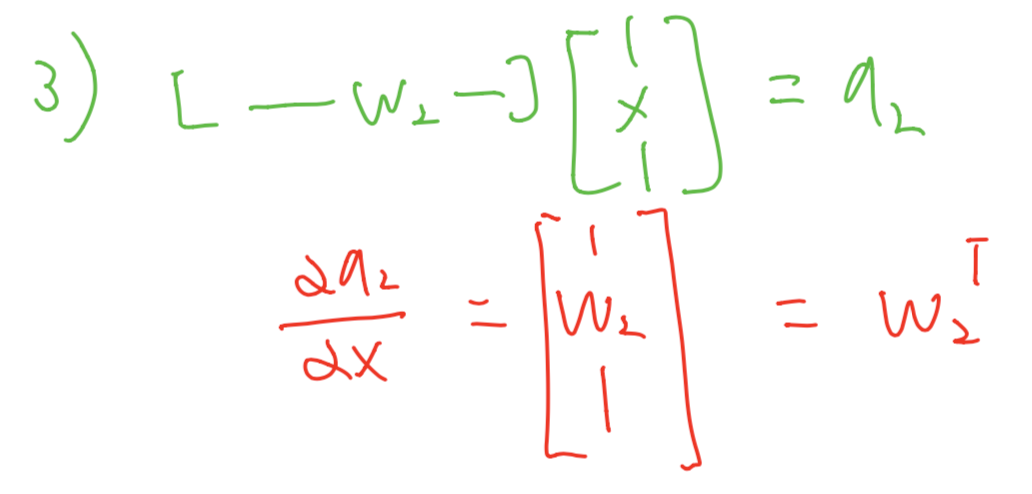 3) [ — w₂ — ] [ | x | ] = a₂
∂a₂/∂x = [ | w₂ | ] = w₂ᵀ